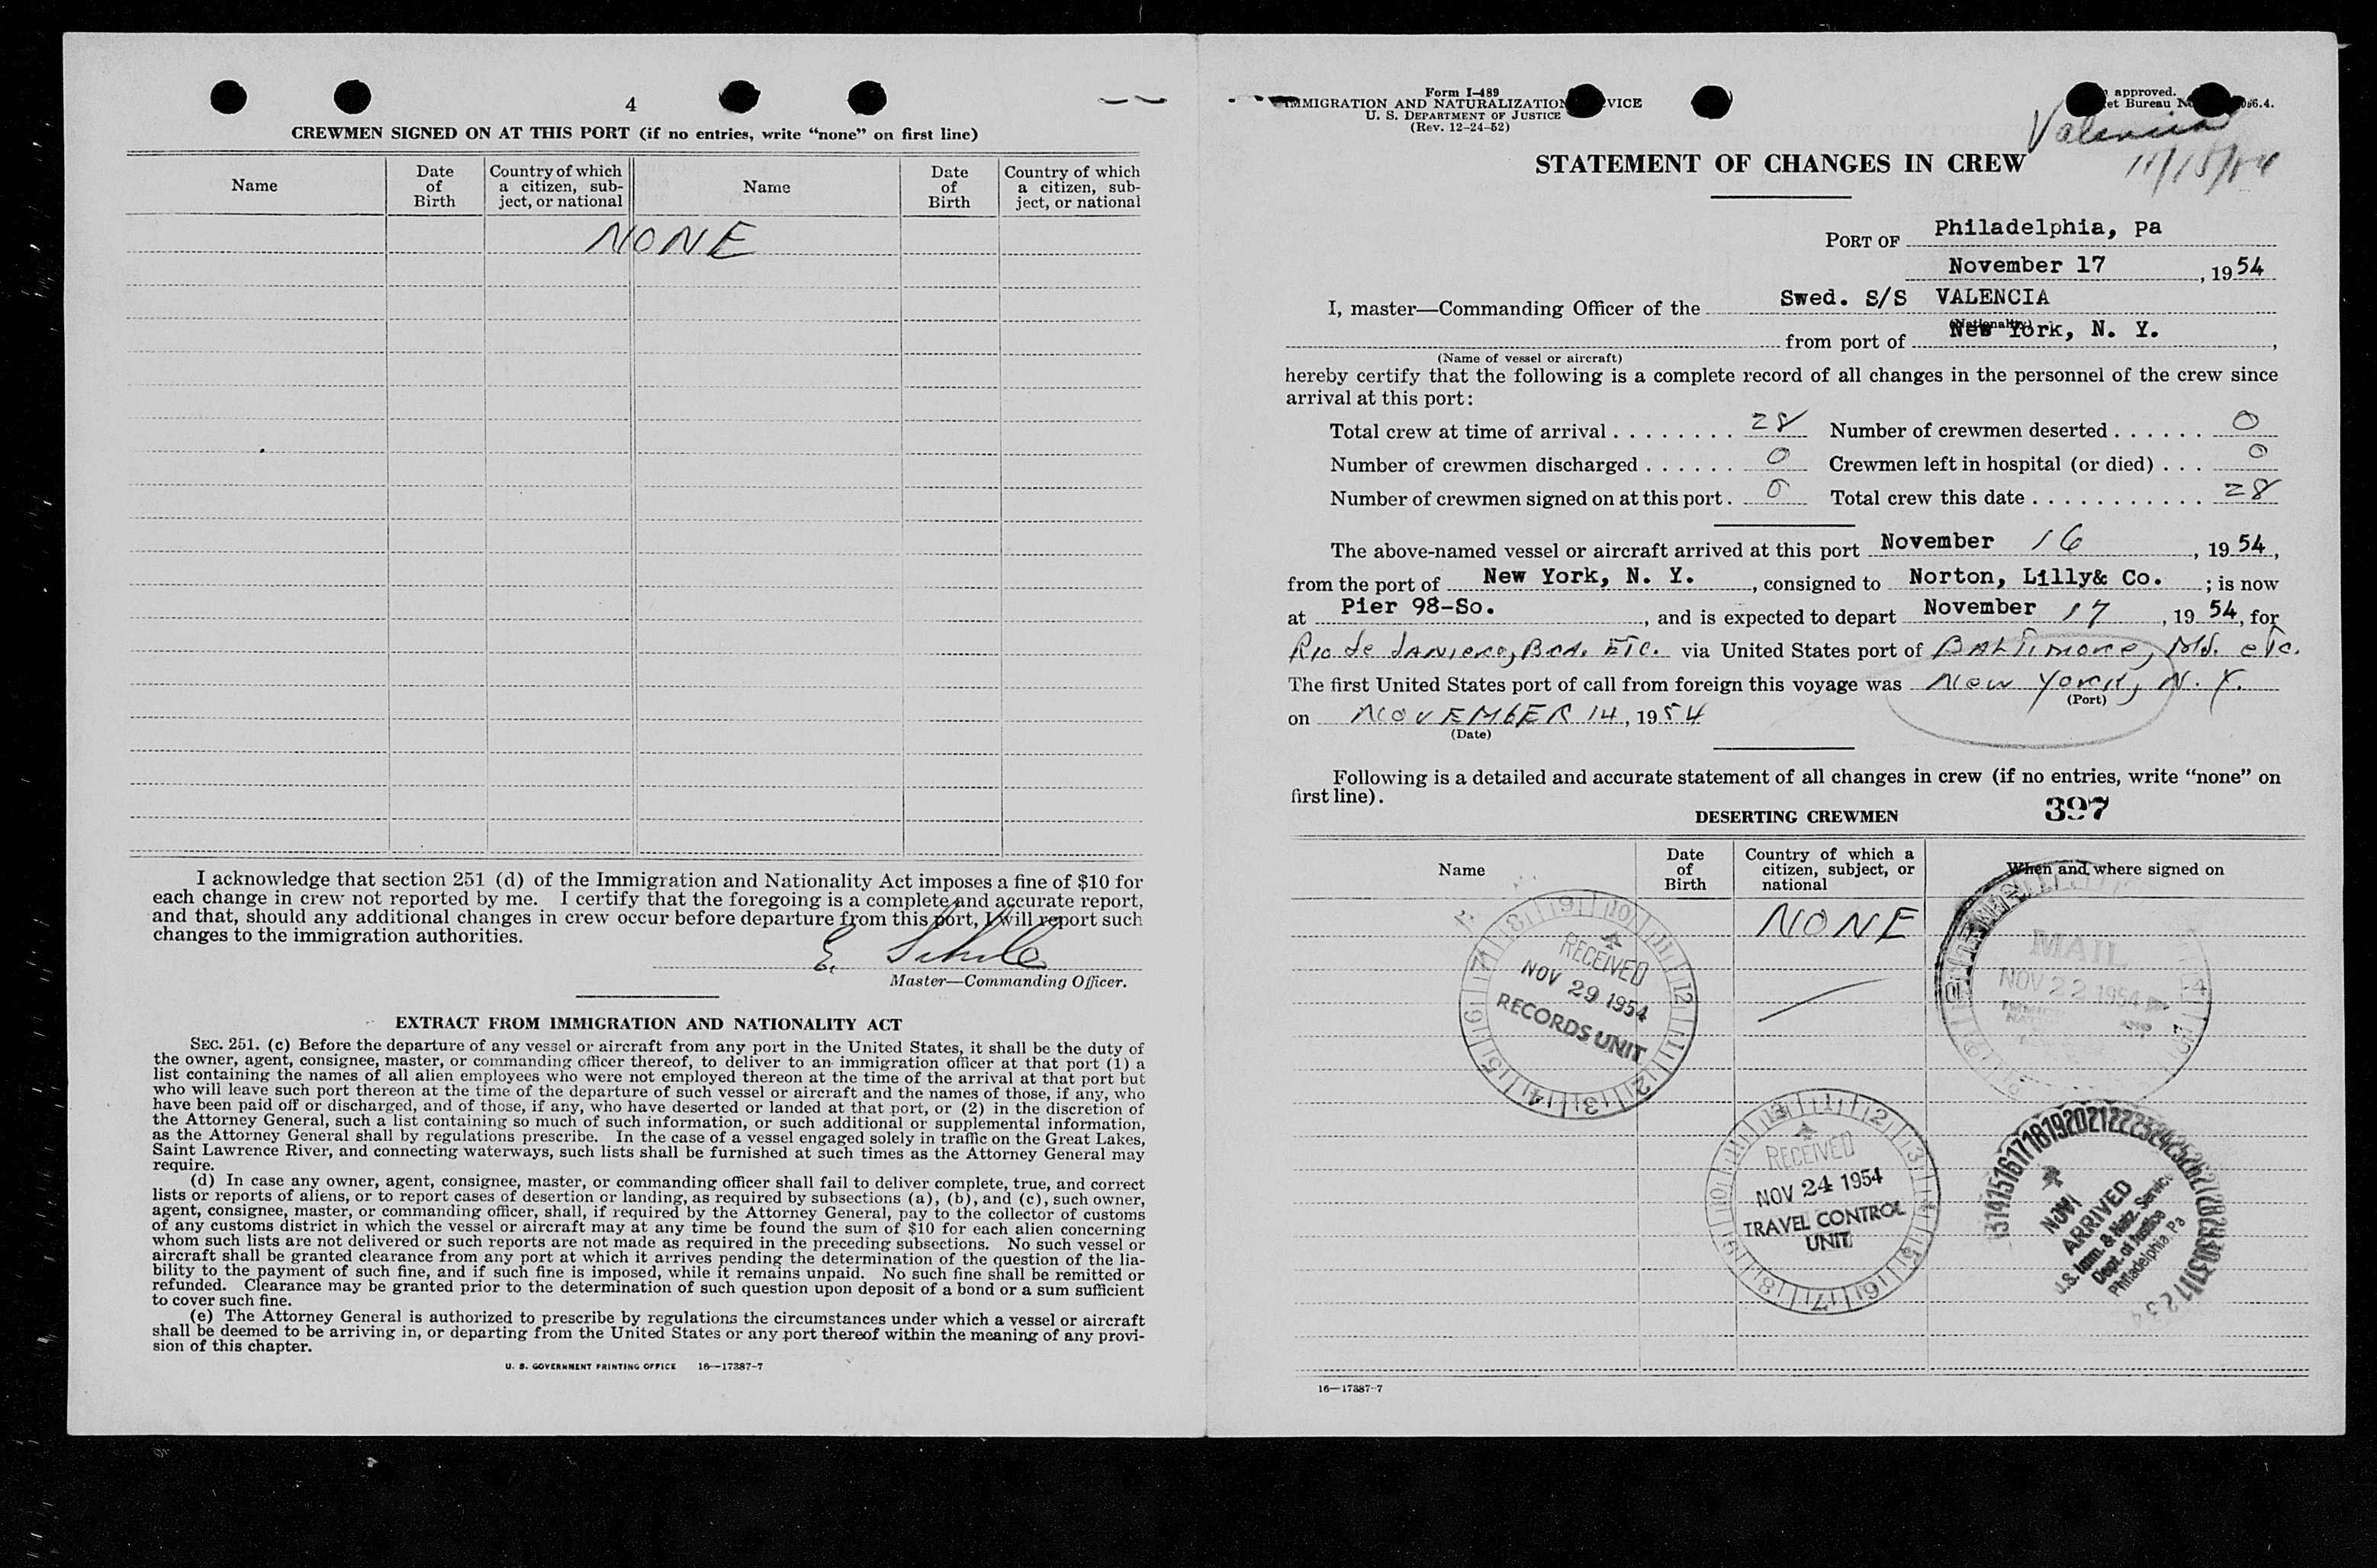 4
CREWMEN SIGNED ON AT THIS PORT (if no entries, write “none” on first line)
Name
Date of Birth
Country of which a citizen, sub-ject, or national
Name
Date of Birth
Country of which a citizen, sub-ject, or national
NONE
I acknowledge that section 251 (d) of the Immigration and Nationality Act imposes a fine of $10 for
each change in crew not reported by me. I certify that the foregoing is a complete and accurate report,
and that, should any additional changes in crew occur before departure from this port, I will report such
changes to the immigration authorities.
E.
Master—Commanding Officer.
EXTRACT FROM IMMIGRATION AND NATIONALITY ACT
SEC. 251. (c) Before the departure of any vessel or aircraft from any port in the United States, it shall be the duty of
the owner, agent, consignee, master, or commanding officer thereof, to deliver to an immigration officer at that port (1) a
list containing the names of all alien employees who were not employed thereon at the time of the arrival at that port but
who will leave such port thereon at the time of the departure of such vessel or aircraft and the names of those, if any, who
have been paid off or discharged, and of those, if any, who have deserted or landed at that port, or (2) in the discretion of
the Attorney General, such a list containing so much of such information, or such additional or supplemental information,
as the Attorney General shall by regulations prescribe. In the case of a vessel engaged solely in traffic on the Great Lakes,
Saint Lawrence River, and connecting waterways, such lists shall be furnished at such times as the Attorney General may
require.
(d) In case any owner, agent, consignee, master, or commanding officer shall fail to deliver complete, true, and correct
lists or reports of aliens, or to report cases of desertion or landing, as required by subsections (a), (b), and (c), such owner,
agent, consignee, master, or commanding officer, shall, if required by the Attorney General, pay to the collector of customs
of any customs district in which the vessel or aircraft may at any time be found the sum of $10 for each alien concerning
whom such lists are not delivered or such reports are not made as required in the preceding subsections. No such vessel or
aircraft shall be granted clearance from any port at which it arrives pending the determination of the question of the lia-
bility to the payment of such fine, and if such fine is imposed, while it remains unpaid. No such fine shall be remitted or
refunded. Clearance may be granted prior to the determination of such question upon deposit of a bond or a sum sufficient
to cover such fine.
(e) The Attorney General is authorized to prescribe by regulations the circumstances under which a vessel or aircraft
shall be deemed to be arriving in, or departing from the United States or any port thereof within the meaning of any provi-
sion of this chapter.
U. S. GOVERNMENT PRINTING OFFICE 16—17387-7
Form I-489
IMMIGRATION AND NATURALIZATION VICE
U. S. DEPARTMENT OF JUSTICE
(Rev. 12-24-52)
approved.
et Bureau
Valencia
STATEMENT OF CHANGES IN CREW
PORT OF Philadelphia, Pa
November 17, 1954
I, master—Commanding Officer of the Swed. S/S VALENCIA
(Nationality)
from port of New York, N. Y.,
(Name of vessel or aircraft)
hereby certify that the following is a complete record of all changes in the personnel of the crew since
arrival at this port:
Total crew at time of arrival . . . . . . . . 28 Number of crewmen deserted . . . . . . 0
Number of crewmen discharged . . . . . . 0 Crewmen left in hospital (or died) . . . 0
Number of crewmen signed on at this port . 0 Total crew this date . . . . . . . . . . . 28
The above-named vessel or aircraft arrived at this port November 16, 1954,
from the port of New York, N. Y., consigned to Norton, Lilly& Co. ; is now
at Pier 98-So., and is expected to depart November 17, 1954, for
Rio de Janiero, Bra. ETC. via United States port of Baltimore, Md. etc.
The first United States port of call from foreign this voyage was New York, N. Y.
(Port)
on NOVEMBER 14, 1954
(Date)
Following is a detailed and accurate statement of all changes in crew (if no entries, write “none” on
first line).
397
DESERTING CREWMEN
Name
Date of Birth
Country of which a citizen, subject, or national
When and where signed on
NONE
RECEIVED
NOV 29 1954
RECORDS UNIT
MAIL
NOV 22 1954
RECEIVED
NOV 24 1954
TRAVEL CONTROL
UNIT
ARRIVED
U.S. Imm. & Natz. Service
Dept. of Justice
Philadelphia Pa
16—17387-7